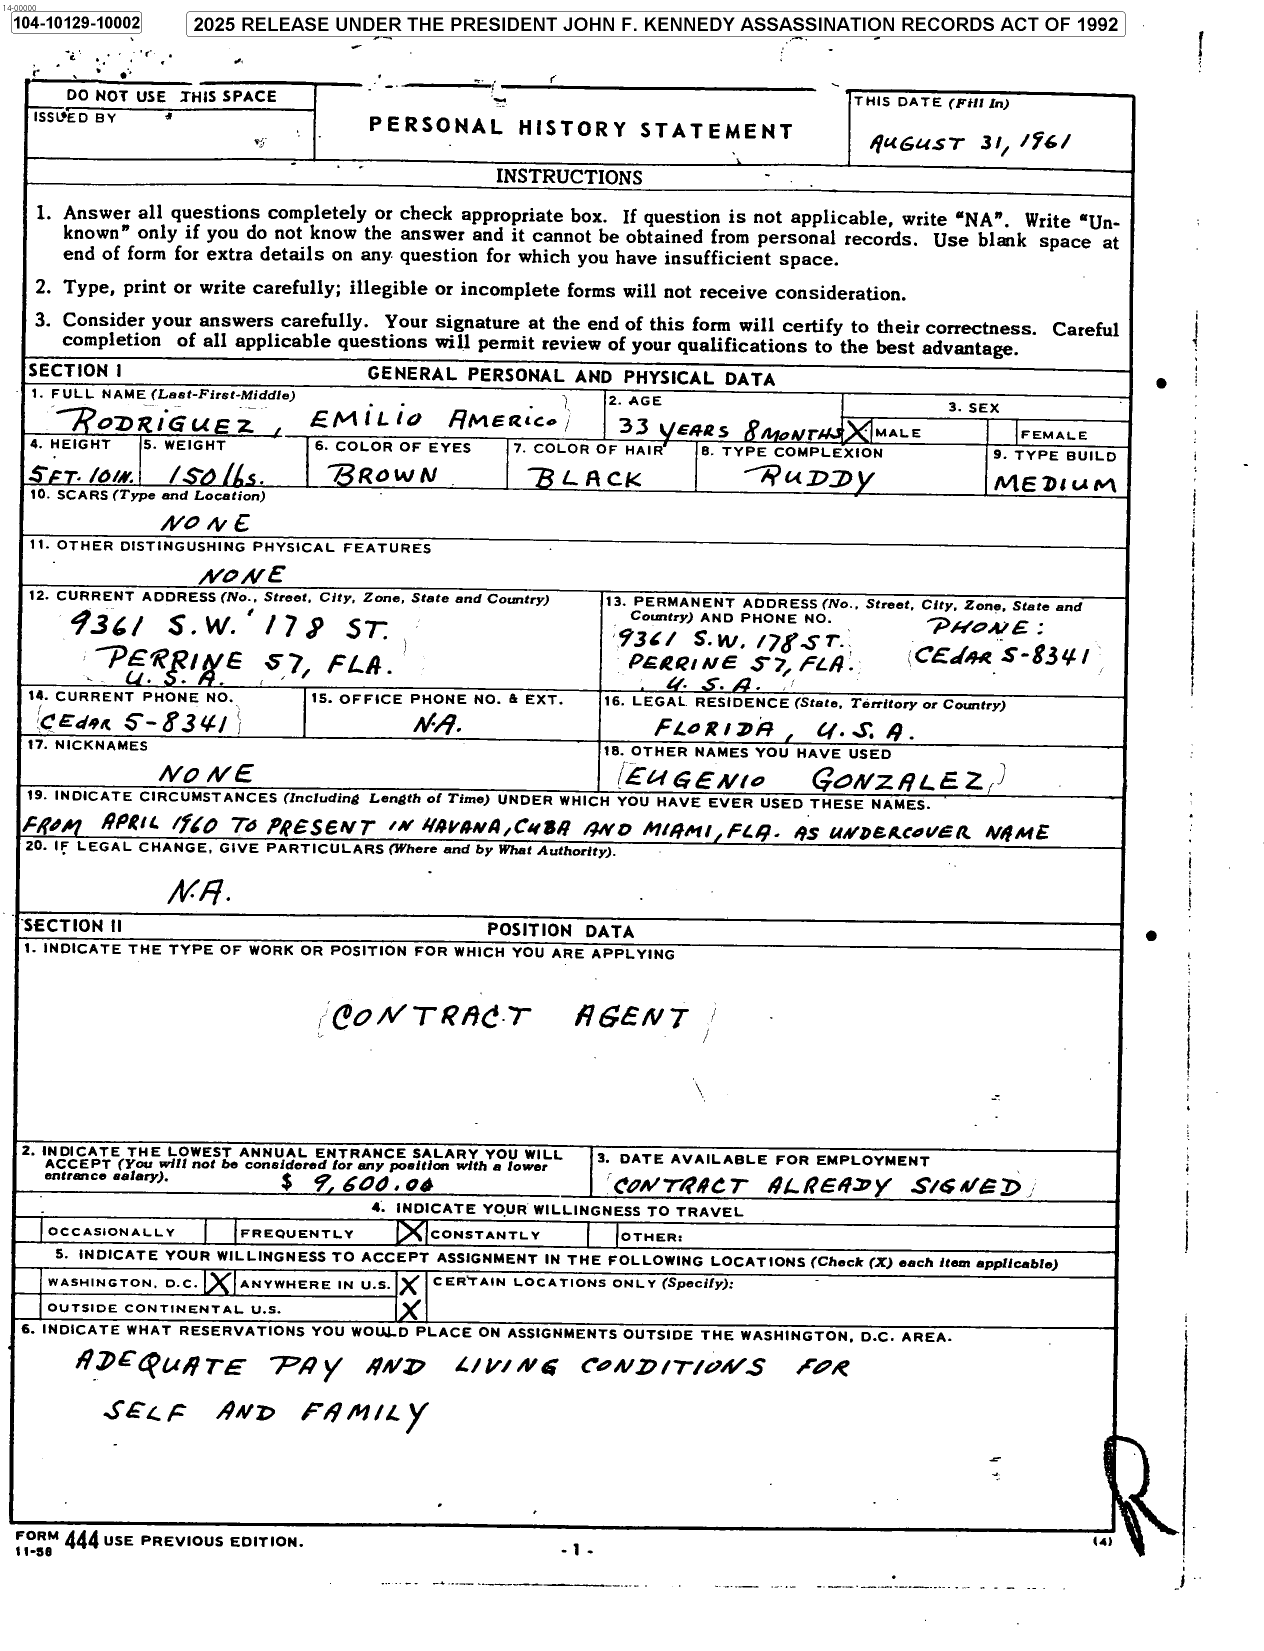 14-00000
104-10129-10002
2025 RELEASE UNDER THE PRESIDENT JOHN F. KENNEDY ASSASSINATION RECORDS ACT OF 1992
DO NOT USE THIS SPACE
ISSUED BY
PERSONAL HISTORY STATEMENT
THIS DATE (Fill In)
AUGUST 31, 1961
INSTRUCTIONS
1. Answer all questions completely or check appropriate box. If question is not applicable, write “NA”. Write “Un-
known” only if you do not know the answer and it cannot be obtained from personal records. Use blank space at
end of form for extra details on any question for which you have insufficient space.
2. Type, print or write carefully; illegible or incomplete forms will not receive consideration.
3. Consider your answers carefully. Your signature at the end of this form will certify to their correctness. Careful
completion of all applicable questions will permit review of your qualifications to the best advantage.
SECTION I GENERAL PERSONAL AND PHYSICAL DATA
1. FULL NAME (Last-First-Middle)
RODRIGUEZ, EMILIO AMERICO
2. AGE
33 YEARS 8 MONTHS
3. SEX
X MALE
FEMALE
4. HEIGHT
5 FT. 10 IN.
5. WEIGHT
150 lbs.
6. COLOR OF EYES
BROWN
7. COLOR OF HAIR
BLACK
8. TYPE COMPLEXION
RUDDY
9. TYPE BUILD
MEDIUM
10. SCARS (Type and Location)
NONE
11. OTHER DISTINGUSHING PHYSICAL FEATURES
NONE
12. CURRENT ADDRESS (No., Street, City, Zone, State and Country)
9361 S.W. 178 ST.
PERRINE 57, FLA.
U. S. A.
13. PERMANENT ADDRESS (No., Street, City, Zone, State and
Country) AND PHONE NO.
9361 S.W. 178 ST.
PERRINE 57, FLA.
U. S. A.
PHONE:
CEdAR 5-8341
14. CURRENT PHONE NO.
CEdAR 5-8341
15. OFFICE PHONE NO. & EXT.
N.A.
16. LEGAL RESIDENCE (State, Territory or Country)
FLORIDA, U.S.A.
17. NICKNAMES
NONE
18. OTHER NAMES YOU HAVE USED
EUGENIO GONZALEZ
19. INDICATE CIRCUMSTANCES (Including Length of Time) UNDER WHICH YOU HAVE EVER USED THESE NAMES.
FROM APRIL 1960 TO PRESENT IN HAVANA, CUBA AND MIAMI, FLA. AS UNDERCOVER NAME
20. IF LEGAL CHANGE, GIVE PARTICULARS (Where and by What Authority).
N.A.
SECTION II POSITION DATA
1. INDICATE THE TYPE OF WORK OR POSITION FOR WHICH YOU ARE APPLYING
CONTRACT AGENT
2. INDICATE THE LOWEST ANNUAL ENTRANCE SALARY YOU WILL
ACCEPT (You will not be considered for any position with a lower
entrance salary).
$ 9,600.00
3. DATE AVAILABLE FOR EMPLOYMENT
CONTRACT ALREADY SIGNED
4. INDICATE YOUR WILLINGNESS TO TRAVEL
OCCASIONALLY FREQUENTLY X CONSTANTLY OTHER:
5. INDICATE YOUR WILLINGNESS TO ACCEPT ASSIGNMENT IN THE FOLLOWING LOCATIONS (Check (X) each item applicable)
WASHINGTON, D.C. X ANYWHERE IN U.S. X CERTAIN LOCATIONS ONLY (Specify):
OUTSIDE CONTINENTAL U.S. X
6. INDICATE WHAT RESERVATIONS YOU WOULD PLACE ON ASSIGNMENTS OUTSIDE THE WASHINGTON, D.C. AREA.
ADEQUATE PAY AND LIVING CONDITIONS FOR
SELF AND FAMILY
R
FORM 444 USE PREVIOUS EDITION.
11-58
- 1 -
(4)